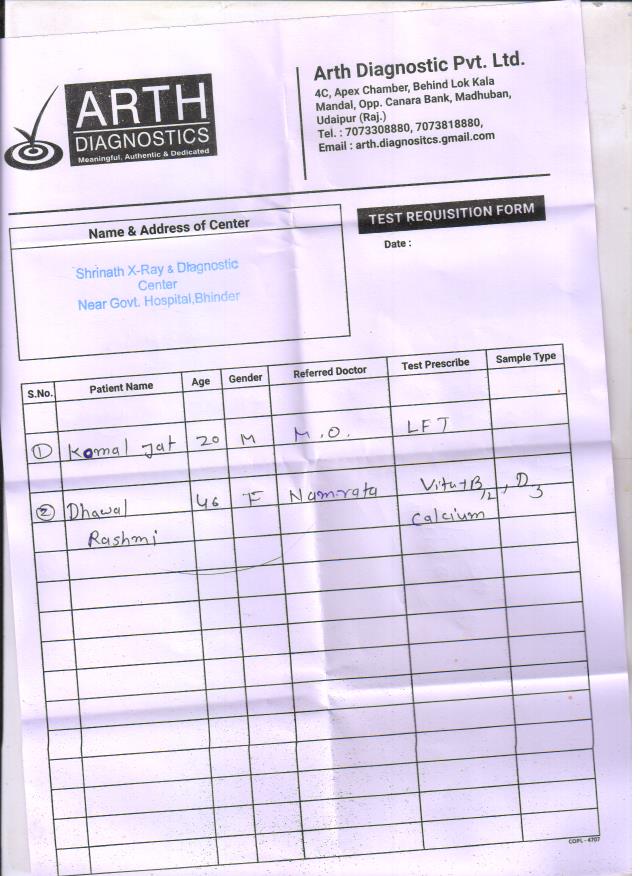 ARTH
DIAGNOSTICS
Meaningful, Authentic & Dedicated
Arth Diagnostic Pvt. Ltd.
4C, Apex Chamber, Behind Lok Kala
Mandal, Opp. Canara Bank, Madhuban,
Udaipur (Raj.)
Tel. : 7073308880, 7073818880,
Email : arth.diagnositcs.gmail.com
Name & Address of Center
Shrinath X-Ray & Diagnostic
Center
Near Govt. Hospital,Bhinder
TEST REQUISITION FORM
Date :
S.No. Patient Name Age Gender Referred Doctor Test Prescribe Sample Type
1 Komal Jat 20 M M.O. LFT
2 Dhawal 46 F Namrata Vit-B12, D3
Rashmi Calcium
COPL - 4707